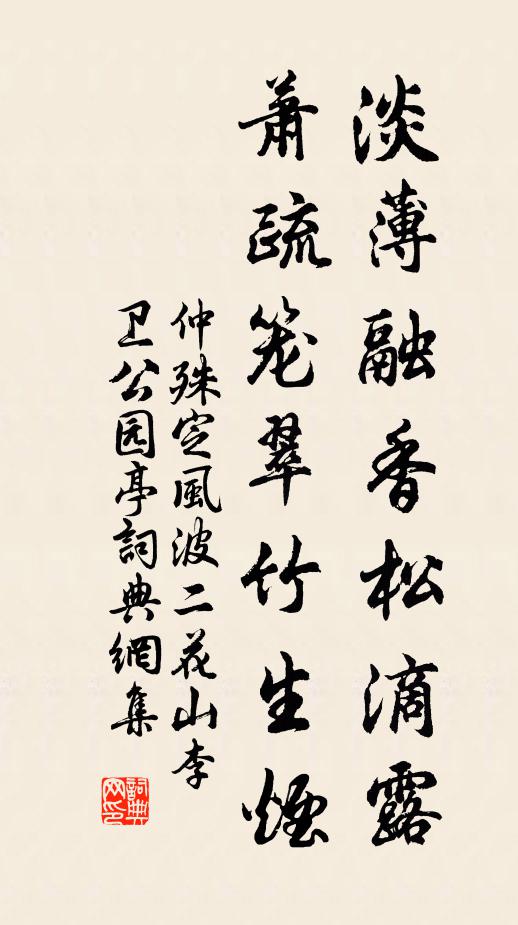 淡薄融香松滴露
蕭疏笼翠竹生煙
仲殊定風波二花山李
卫公园亭詞典網集
詞典网印